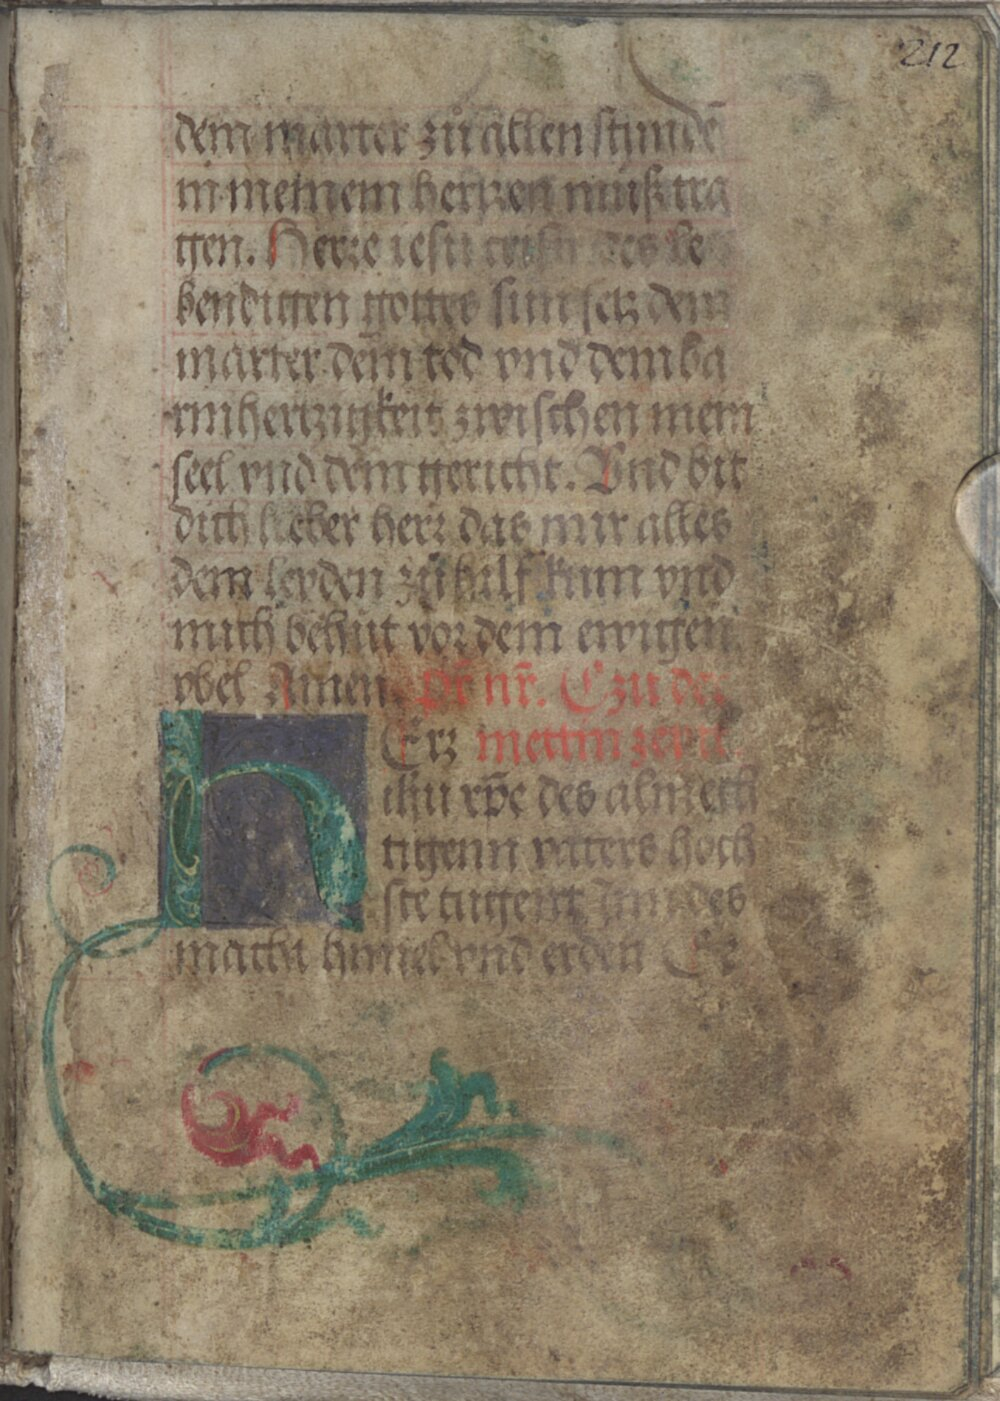 212
dein marter zů allen stundē
in meinem hertzen muß tra
gen. Herre iesu des le
bendigen gottes sun setz dein
marter dein tod vnd dein ba
rmhertzigkeit zwischen mein
seel vnd dein gericht. Vnd bit
dich lieber herr das mir alles
dein leyden zů hilf kum vnd
mich behut vor dem ewigen
vbel Amen Pr̄ nr̄. Czu der
HErr mettin zeyt.
ihū xp̄e des almech
tigenn vaters hoch
ste tugent des
macht himel vnd erden Er